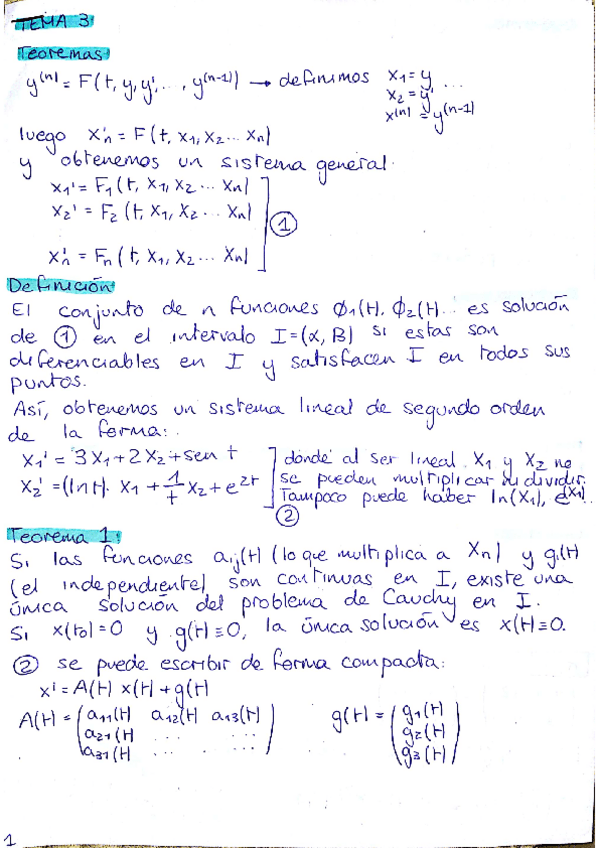 TEMA 3
Teoremas
y^(n) = F(t, y, y', ..., y^(n-1)) → definimos x1 = y ...
x2 = y'
x^(n) = y^(n-1)
luego x'n = F(t, x1, x2 ... xn)
y obtenemos un sistema general.
x1' = F1(t, x1, x2 ... xn)
x2' = F2(t, x1, x2 ... xn)
①
x'n = Fn(t, x1, x2 ... xn)
Definición
El conjunto de n funciones ϕ1(t). ϕ2(t)... es solución
de ① en el intervalo I=(α, β) si estas son
diferenciables en I y satisfacen I en todos sus
puntos.
Así, obtenemos un sistema lineal de segundo orden
de la forma:
x1' = 3x1 + 2x2 + sen t ] donde al ser lineal x1 y x2 no
x2' = (ln t). x1 + 1/t x2 + e^2t ] se pueden multiplicar ni dividir.
Tampoco puede haber ln(x1), e^(x1).
②
Teorema 1:
Si las funciones aij(t) (lo que multiplica a xn) y gi(t)
(el independiente) son continuas en I, existe una
única solución del problema de Cauchy en I.
Si x(to)=0 y g(t)≡0, la única solución es x(t)≡0.
② se puede escribir de forma compacta:
x' = A(t) x(t) + g(t)
A(t) = (a11(t) a12(t) a13(t)) g(t) = (g1(t))
a21(t) ... ... g2(t)
a31(t) ... ... g3(t)
1